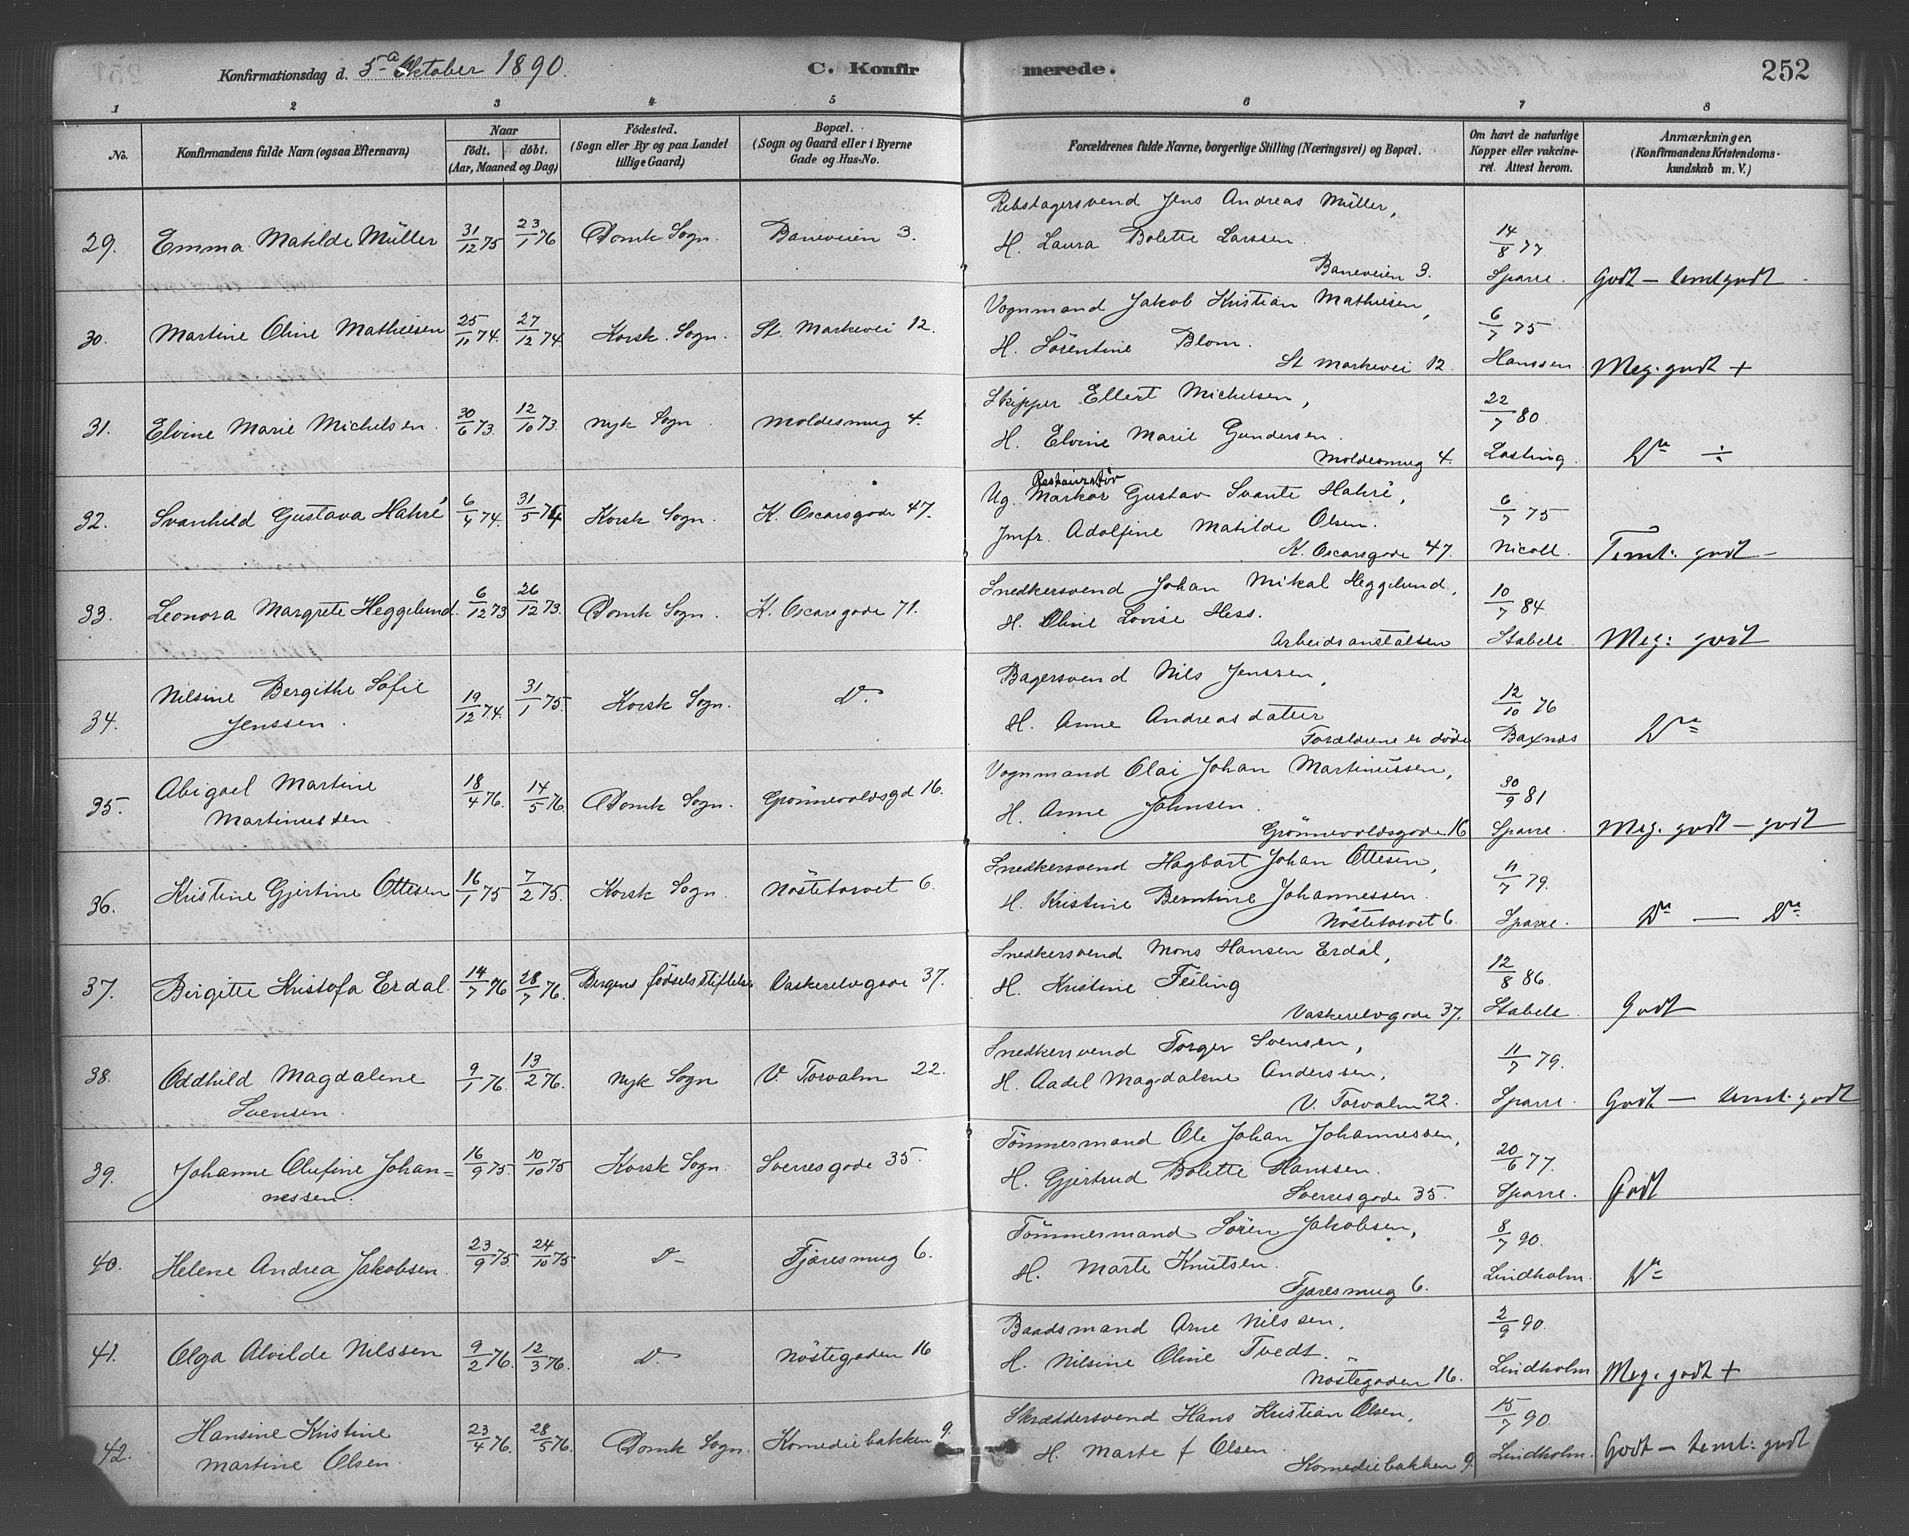 Konfirmationsdag d. 5te Oktober 1890.
C. Konfirmerede.
252
1 2 3 4 5 6 7 8
No.
Konfirmandens fulde Navn (ogsaa Efternavn)
Naar
født. døbt.
(Aar, Maaned og Dag)
Fødested.
(Sogn eller By og paa Landet
tillige Gaard)
Bopæl.
(Sogn og Gaard eller i Byerne
Gade og Hus-No.
Forældrenes fulde Navne, borgerlige Stilling (Næringsvei) og Bopæl.
Om havt de naturlige
Kopper eller vakcine-
ret. Attest herom.
Anmærkninger.
(Konfirmandens Kristendoms-
kundskab m. V.)
Rebslagersvend Jens Andreas Müller,
29. Emma Matilde Müller 31/12 75 23/1 76 Domk Sogn. Baneveien 3. H. Laura Bolette Larssen. 14/8 77
Baneveien 3. Sparre. Godt – temlgodt
Vognmand Jakob Kristian Mathiesen,
30. Martine Oline Mathiesen 25/11 74. 27/12 74 Korsk. Sogn. St. Markevei 12. H. Sørentine Blom. 6/7 75
St Markevei 12. Hanssen Meg. godt +
Skipper Ellert Michelsen,
31. Elvine Marie Michelsen. 30/6 73. 12/10 73. Nyk Sogn Moldesmug 4. H. Elvine Marie Gundersen. 22/7 80.
Moldesmug 4. Lasting. Do ÷
Restauratør
Ug. Markør Gustav Svante Hahré,
32. Svanhild Gustava Hahré 6/4 74. 31/5 74 Korsk Sogn. K. Oscarsgade 47. Jmfr. Adolfine Matilde Olsen. 6/7 75
K. Oscarsgade 47. Nicoll. Temt. godt –
Snedkersvend Johan Mikal Heggelund,
33. Leonora Margrete Heggelund. 6/12 73 26/12 73. Domk Sogn. K. Oscarsgade 71. H. Oline Lovise Hess. 10/7 84
Arbeidsanstalten Stabell Meg: godt
Bagersvend Nils Jenssen,
34. Nilsine Bergithe Sofie
Jenssen. 19/12 74. 31/1 75. Korsk Sogn. Do H. Anne Andreasdatter 12/10 76
Forældrene er døde Do
Vognmand Olai Johan Martinussen,
35. Abigael Martine
Martinussen. 18/4 76. 14/5 76 Domk Sogn. Grønnevoldsgd 16. H. Anne Johnsen. 30/9 81
Grønnevoldsgade 16 Sparre. Meg. godt – godt
Snedkersvend Hagbart Johan Ottesen,
36. Kristine Gjertine Ottesen 16/1 75 7/2 75. Korsk Sogn Nøstetorvet 6. H. Kristine Berntine Johannessen. 11/7 79.
Nøstetorvet 6. Sparre. Do – Do
Snedkersvend Mons Hansen Erdal,
37. Birgitte Kristofa Erdal. 14/7 76 28/7 76. Bergens fødselsstiftelse Vaskerelvgade 37. H. Kristine Feiling 12/8 86
Vaskerelvgade 37. Stabell Godt
Snedkersvend Torger Svensen,
38. Oddhild Magdalene
Svensen. 9/1 76. 13/2 76. Nyk Sogn V. Torvalm 22. H. Aadel Magdalene Anderssen, 11/7 79.
V. Torvalm 22. Sparre. Godt – temt. godt
Tømmermand Ole Johan Johannessen,
39. Johanne Olufine Johan=
nessen. 16/9 75 10/10 75 Korsk Sogn. Sverresgade 35. H. Gjertrud Bolette Hanssen. 20/6 77.
Sverresgade 35. Sparre. Godt
Tømmermand Søren Jakobsen,
40. Helene Andrea Jakobsen. 23/9 75. 24/10 75 Do Fjæresmug 6. H. Marte Knutsen. 8/7 90.
Fjæresmug 6. Lindholm. Do
Baadsmand Arne Nilssen.
41. Olga Alvilde Nilssen 9/2 76. 12/3 76. Do Nøstegaden 16 H. Nilsine Oline Tvedt. 2/9 90.
Nøstegaden 16. Lindholm Meg. godt +
Skræddersvend Hans Kristian Olsen,
42. Hansine Kristine
Martine Olsen. 23/4 76. 28/5 76. Domk Sogn. Komediebakken 9. H. Marte f Olsen. 15/7 90.
Komediebakken 9. Lindholm. Godt – temt. godt